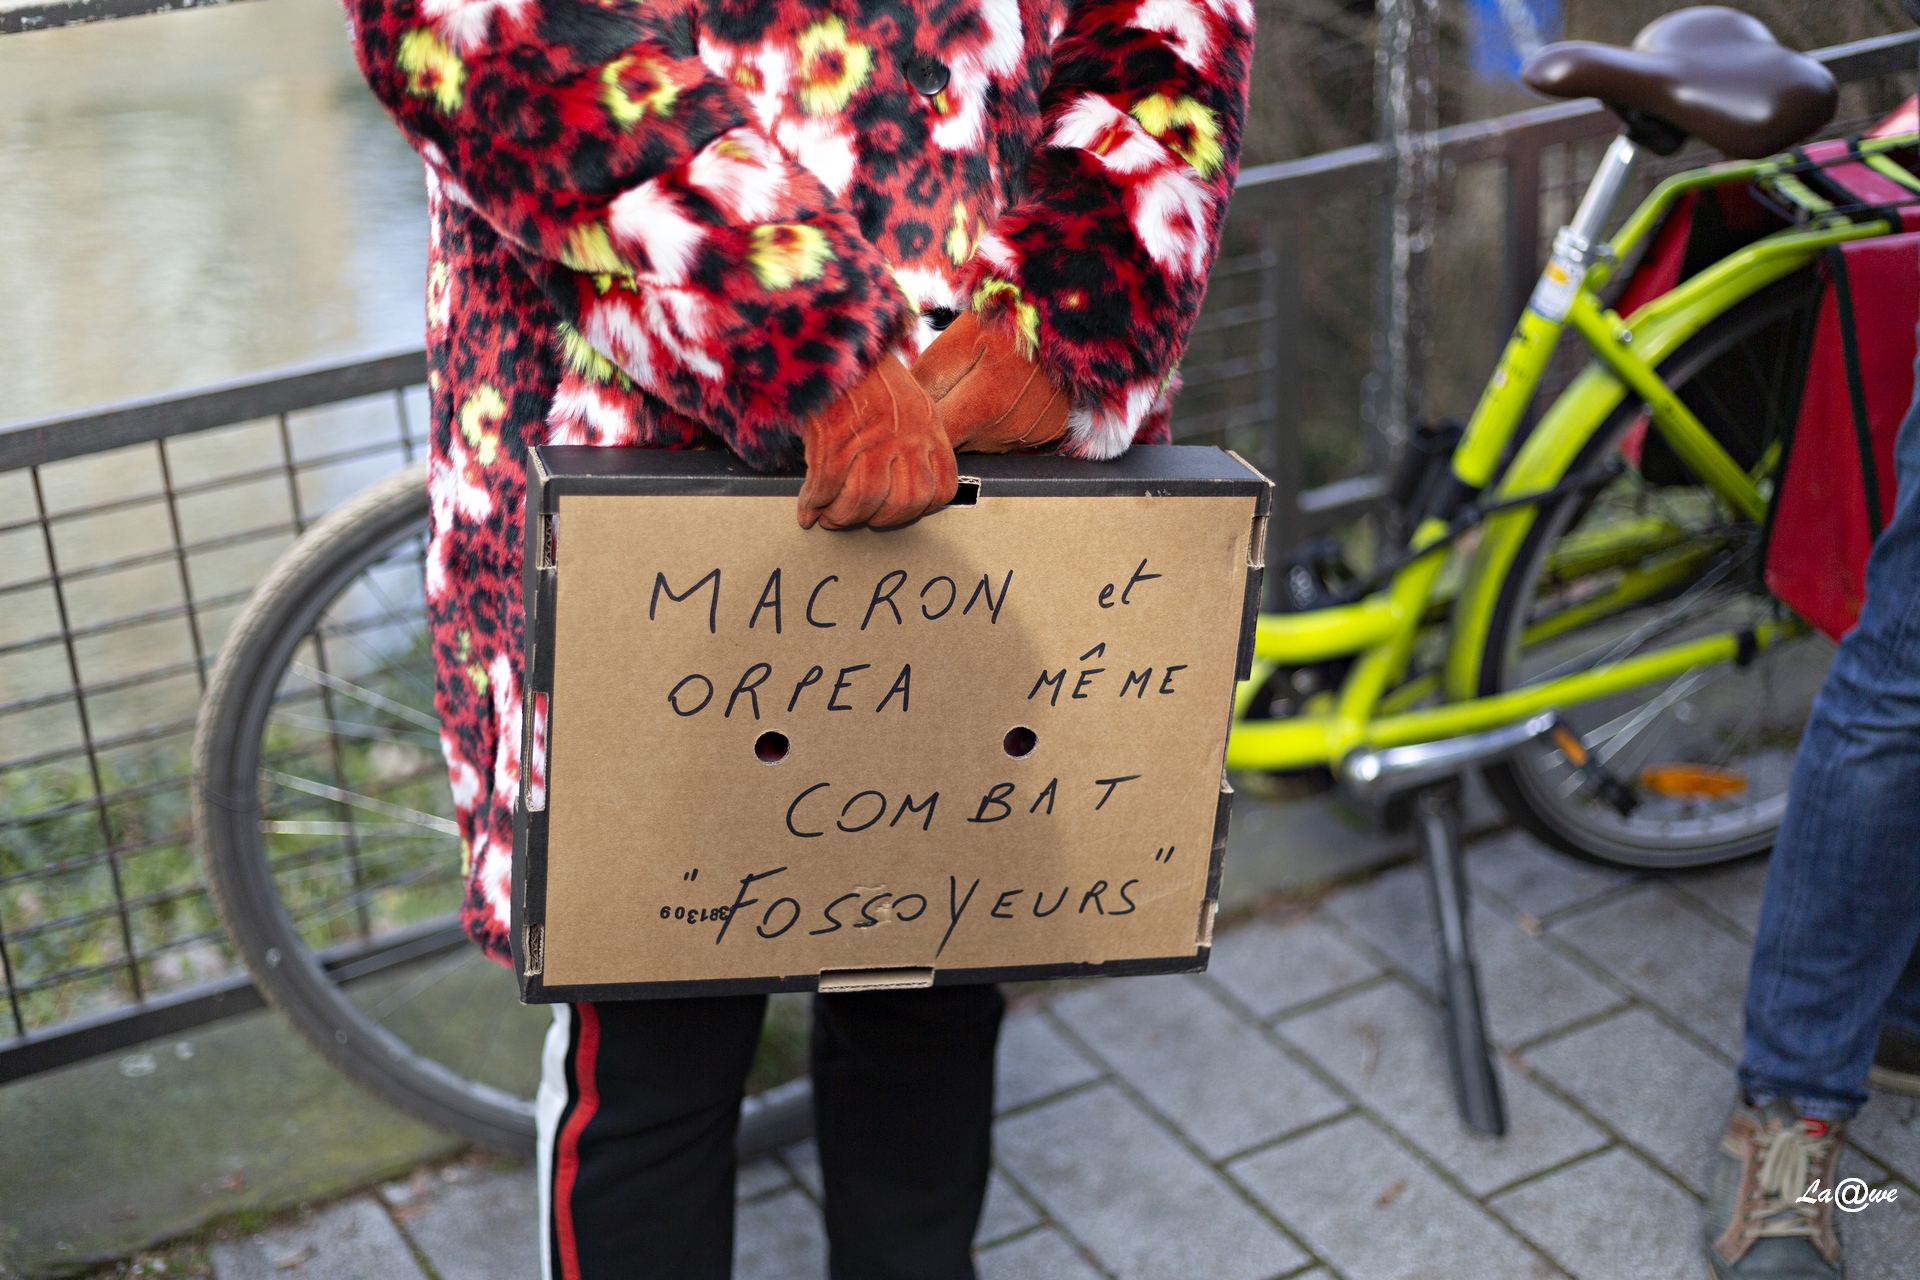 MACRON et
ORPEA MÊME
COMBAT
"FOSSOYEURS"
381309
La@we